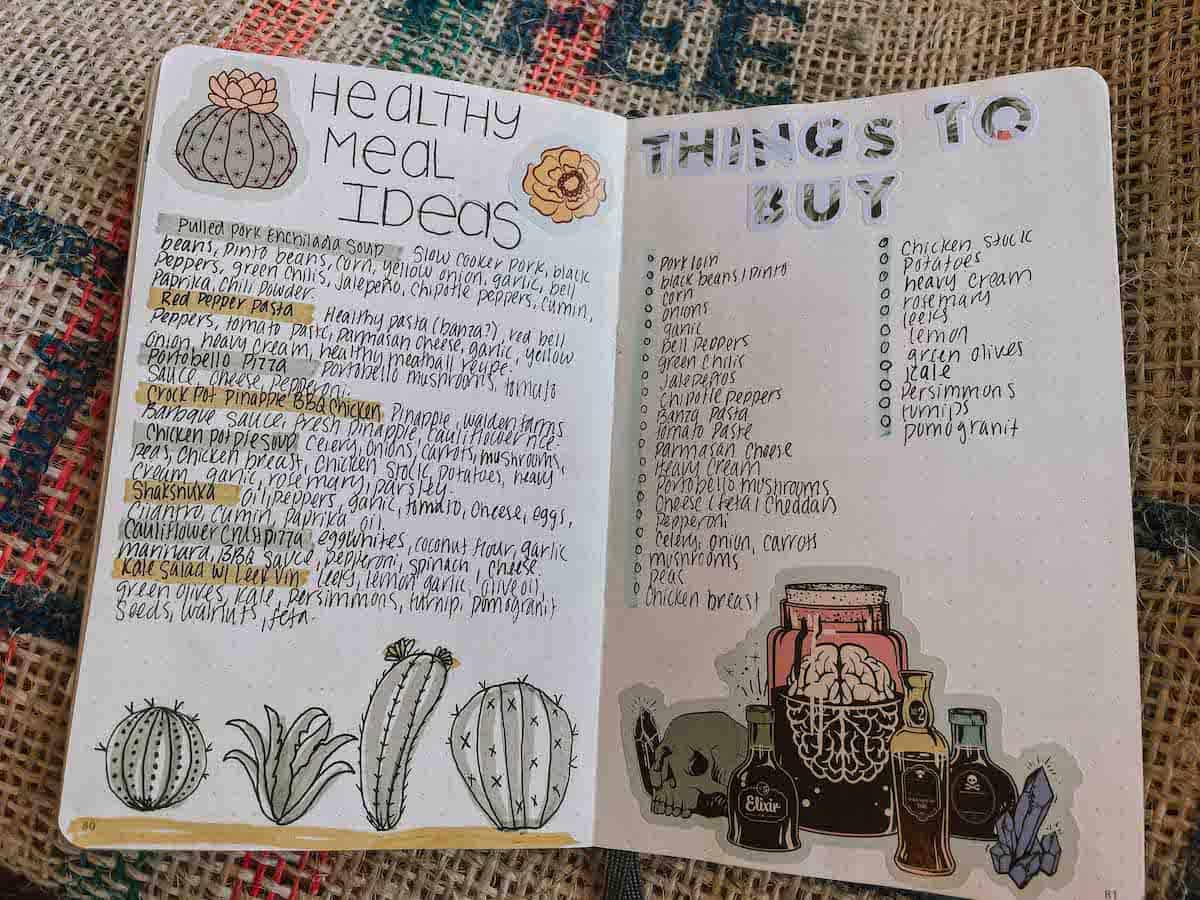 HeaLTHY
Meal
IDeas
Pulled Pork Enchilada Soup Slow Cooker Pork, black
beans, Pinto beans, corn, yellow onion, garlic, bell
Peppers, green chilis, Jalepeño, Chipotle peppers, cumin,
Paprika, Chili Powder.
Red Pepper Pasta Healthy pasta (banza?), red bell
Peppers, tomato paste, parmasan cheese, garlic, yellow
onion, heavy cream, healthy meatball recipe.
Portobello Pizza Portobello mushrooms, tomato
Sauce, cheese, pepperoni.
Crock Pot Pinapple BBQ Chicken Pinapple, walden farms
Barbque sauce, fresh pinapple, cauliflower rice
Chicken pot pie soup Celery, onions, carrots, mushrooms,
peas, chicken breast, chicken stock, potatoes, heavy
cream, garlic, rosemary, parsley.
Shakshuka oil, peppers, garlic, tomato, cheese, eggs,
Cilantro, cumin, paprika, oil.
Cauliflower Crust pizza eggwhites, coconut flour, garlic
marinara, BBQ sauce, pepperoni, spinach, cheese
Kale Salad w/ Leek Vin leeks, lemon, garlic, olive oil,
green olives, kale, persimmons, turnip, pomogranit
Seeds, walnuts, feta.
80
THINGS TO
BUY
Pork loin
black beans / Pinto
corn
onions
garlic
Bell Peppers
green chilis
Jalepeños
Chipotle peppers
Banza Pasta
Tomato Paste
Parmasan Cheese
Heavy Cream
Portobello mushrooms
Cheese (feta / Cheddar)
Pepperoni
Celery, onion, carrots
mushrooms
peas
Chicken breast
Chicken Stock
Potatoes
heavy cream
rosemary
leeks
lemon
green olives
kale
Persimmons
turnips
pomogranit
Nº2
Elixir
81